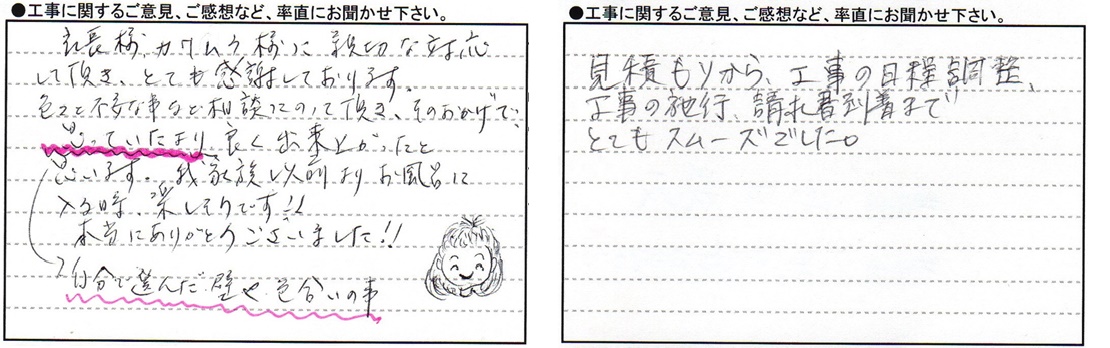 ●工事に関するご意見、ご感想など、率直にお聞かせ下さい。
社長様、カワムラ様に親切な対応
して頂き、とても感謝しております。
色々と不安な事など相談にのって頂き、そのおかげで、
思っていたより良く出来上がったと
思います。我家族以前よりお風呂に
入る時、楽しそうです!!
本当にありがとうございました!!
自分で選んだ壁や色合いの事
●工事に関するご意見、ご感想など、率直にお聞かせ下さい。
見積もりから、工事の日程調整、
工事の施行、請求書到着まで
とてもスムーズでした。